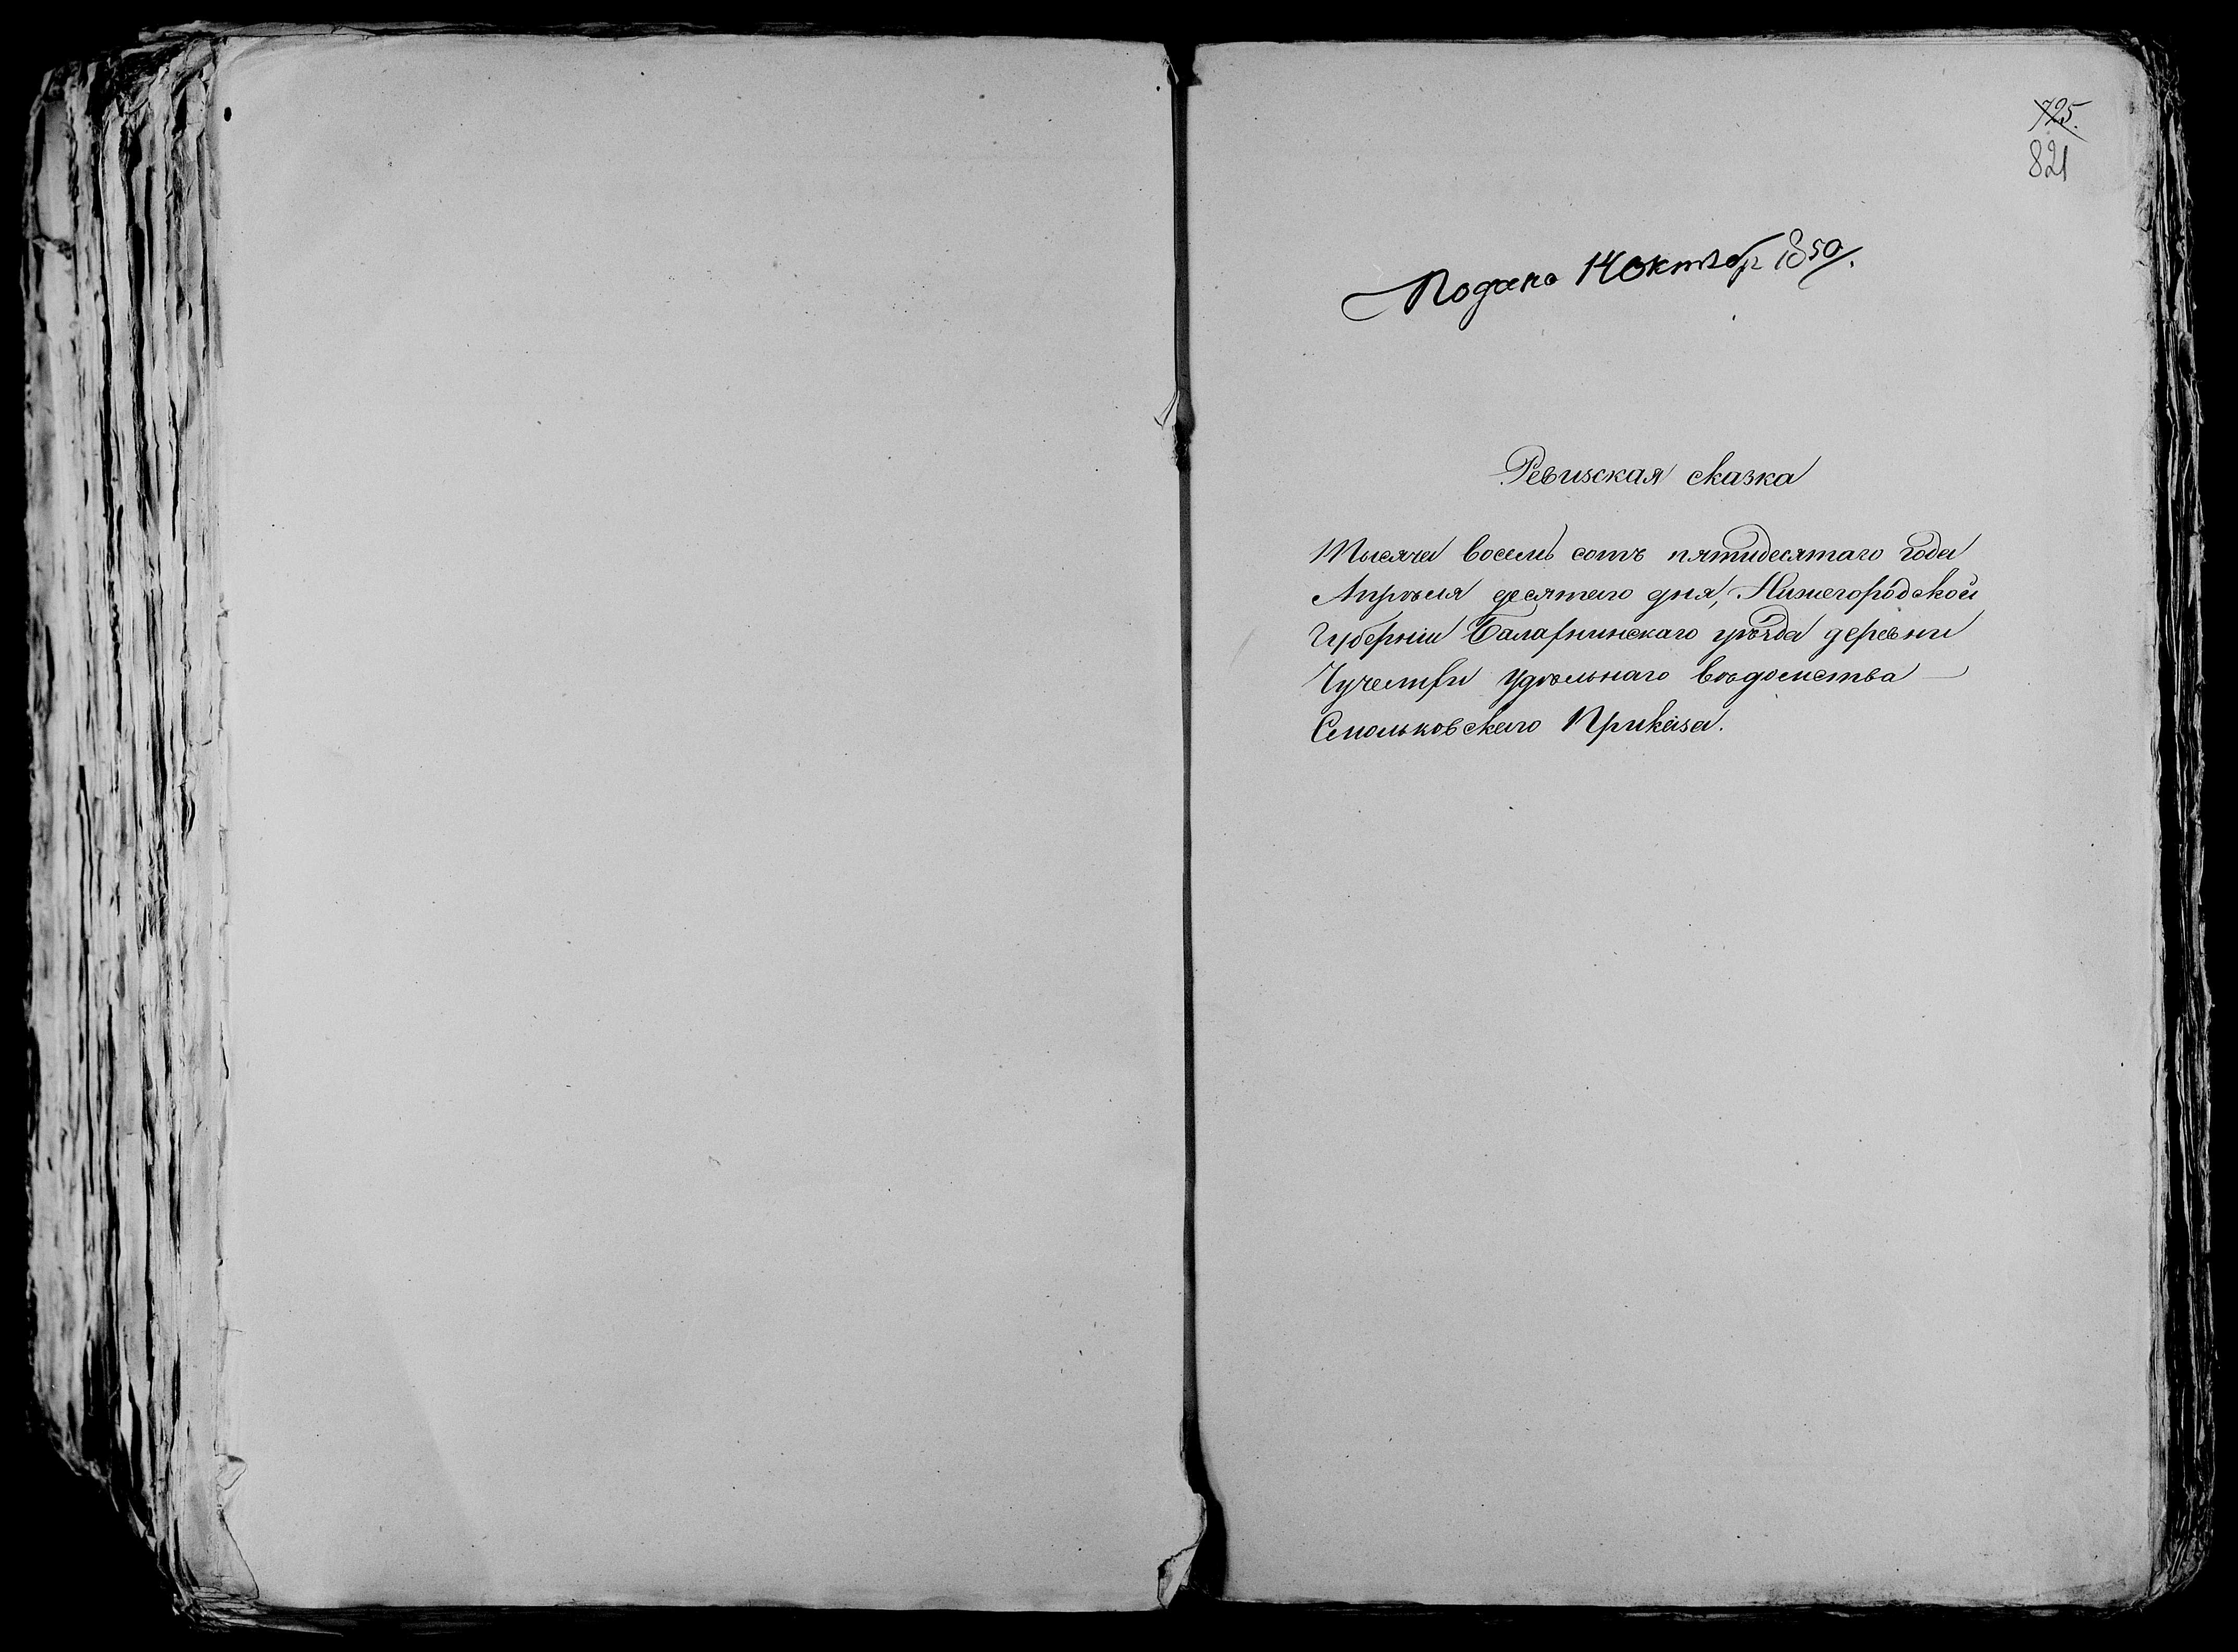 725.
821
Подана 14 октябр 1850.
Ревизская сказка
Тысяча восемь сотъ пятидесятаго года
Апрѣля десятаго дня, Нижегородской
Губерніи Балахнинскаго уѣзда деревни
удѣльнаго вѣдомства
Смольковскаго Приказа.